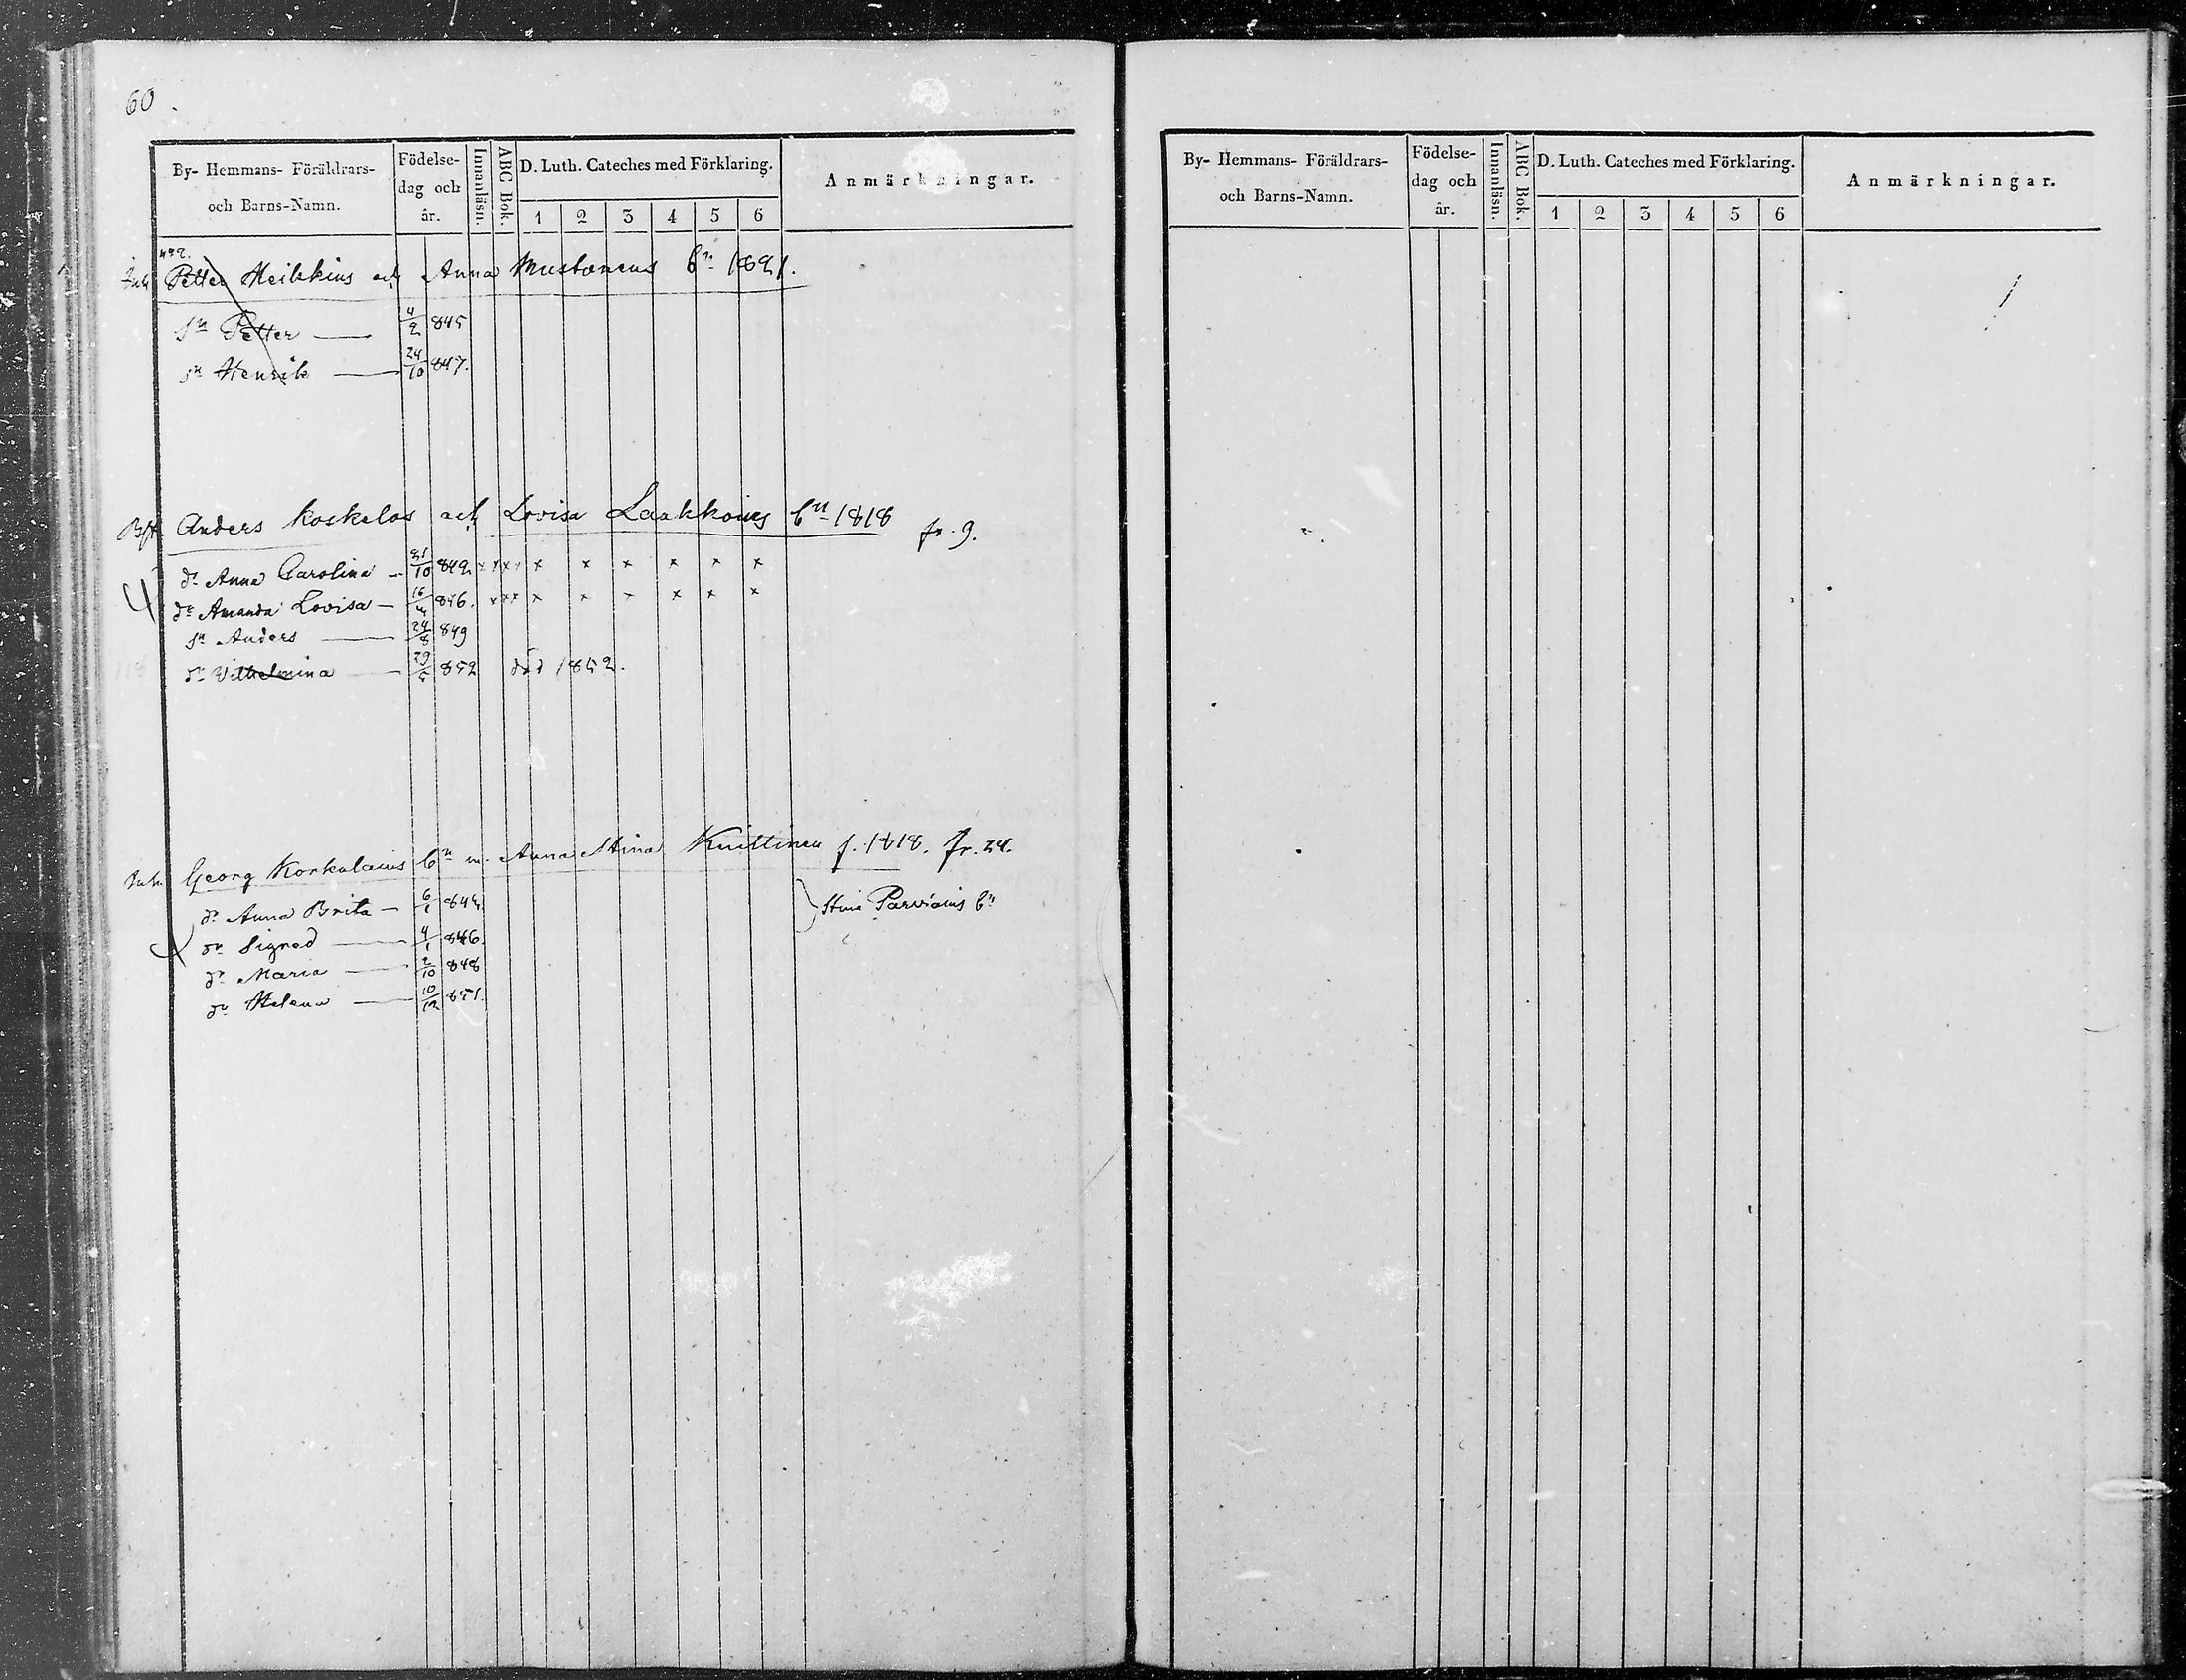 60.
By- Hemmans- Föräldrars- och Barns-Namn.
Födelse- dag och år.
Innanläsn.
ABC Bok.
D. Luth. Cateches med Förklaring.
1 2 3 4 5 6
Anmärkningar.
Inh Petter Heikkins och Anna Mustonens bn 1821.
sn Petter — 4/2 845
sn Henrik — 24/10 847.
Anders Koskelos och Lovisa Laakkoines bn 1818 fr. 9.
dr Anna Carolina — 31/10 842 x x x x x x x x x x
dr Amanda Lovisa — 16/4 846. x x x x x x x x x
sn Anders — 24/8 849
dr Vilhelmina — 29/5 852 död 1852.
Inh. Georg Korkalaius bn m. Anna Stina Knittinen f. 1818. fr. 24.
dr Anna Brita — 6/1 844. Stina Parviains bn
dr Signed — 4/1 846.
dr Maria — 2/10 848
dr Helena — 10/12 851.
By- Hemmans- Föräldrars- och Barns-Namn.
Födelse- dag och år.
Innanläsn.
ABC Bok.
D. Luth. Cateches med Förklaring.
1 2 3 4 5 6
Anmärkningar.